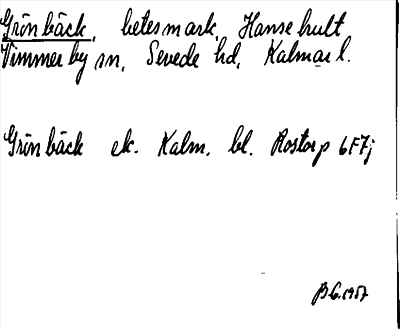 Grönbäck, betesmark, Hansehult
Vimmerby sn, Sevede hd, Kalmar l.
Grönbäck ek. Kalm. bl. Rostorp 6F7j
BG. 1957